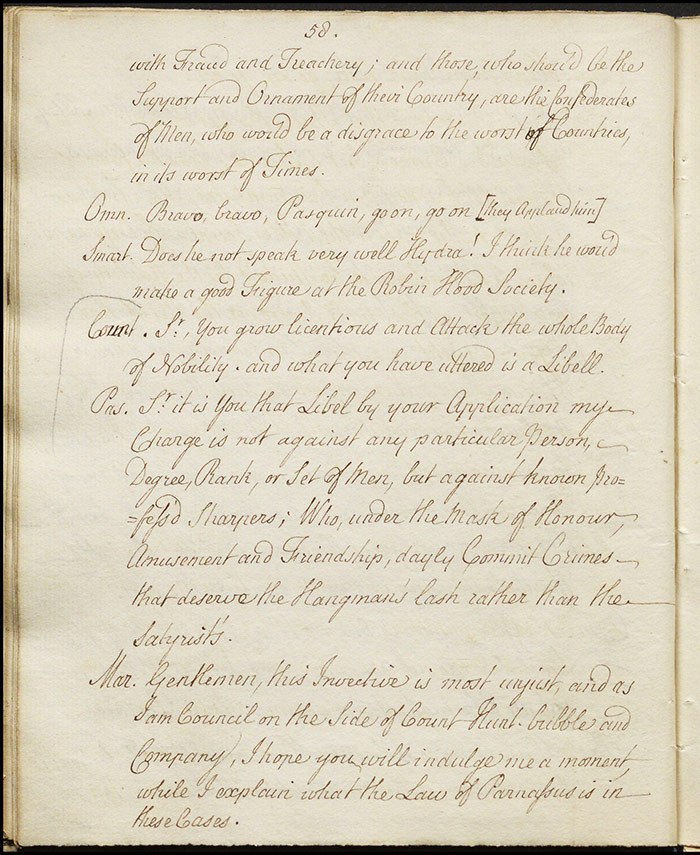 58.
with Fraud and Treachery; and those, who shou'd be the
Support and Ornament of their Country, are the Confederates
of Men, who wou'd be a disgrace to the worst of Countries,
in its worst of Times.
Omn. Bravo, bravo, Pasquin, go on, go on [they Applaud him]
Smart. Does he not speak very well Hydra! I think he wou'd
make a good Figure at the Robin Hood Society.
Count. Sr., You grow licentious and Attack the whole Body
of Nobility. and what you have uttered is a Libell.
Pas. Sr. it is You that Libel by your Application my
Charge is not against any particular Person,
Degree, Rank, or Set of Men, but against known Pro=
=fess'd Sharpers; Who, under the Mask of Honour,
Amusement and Friendship, dayly Commit Crimes
that deserve the Hangman's lash rather than the
Satyrist's.
Mar. Gentlemen, this Invective is most unjust, and as
I am Council on the Side of Count Hunt-bubble and
Company, I hope you will indulge me a moment,
while I explain what the Law of Parnassus is in
these Cases.